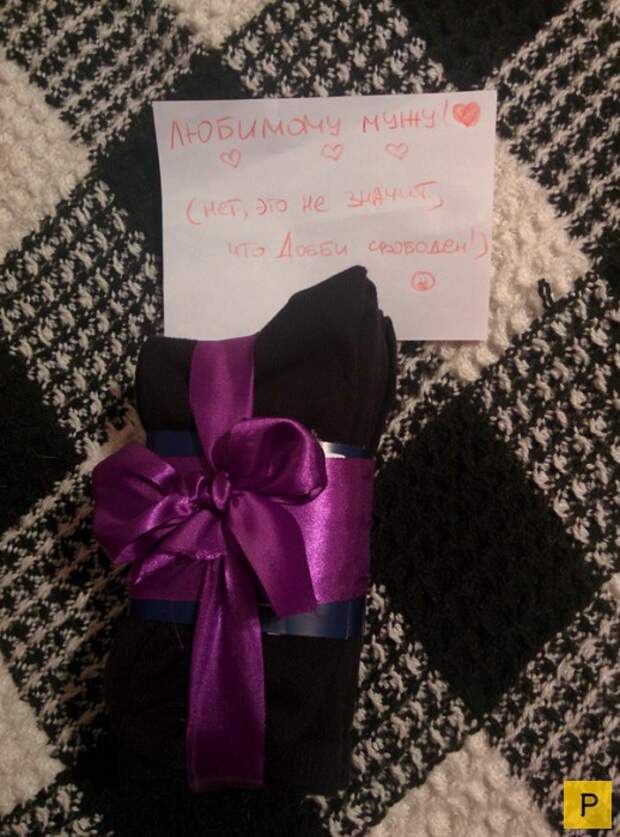 ЛЮБИМОМУ МУЖУ!
(НЕТ, ЭТО НЕ ЗНАЧИТ,
ЧТО ДОББИ СВОБОДЕН!)
P